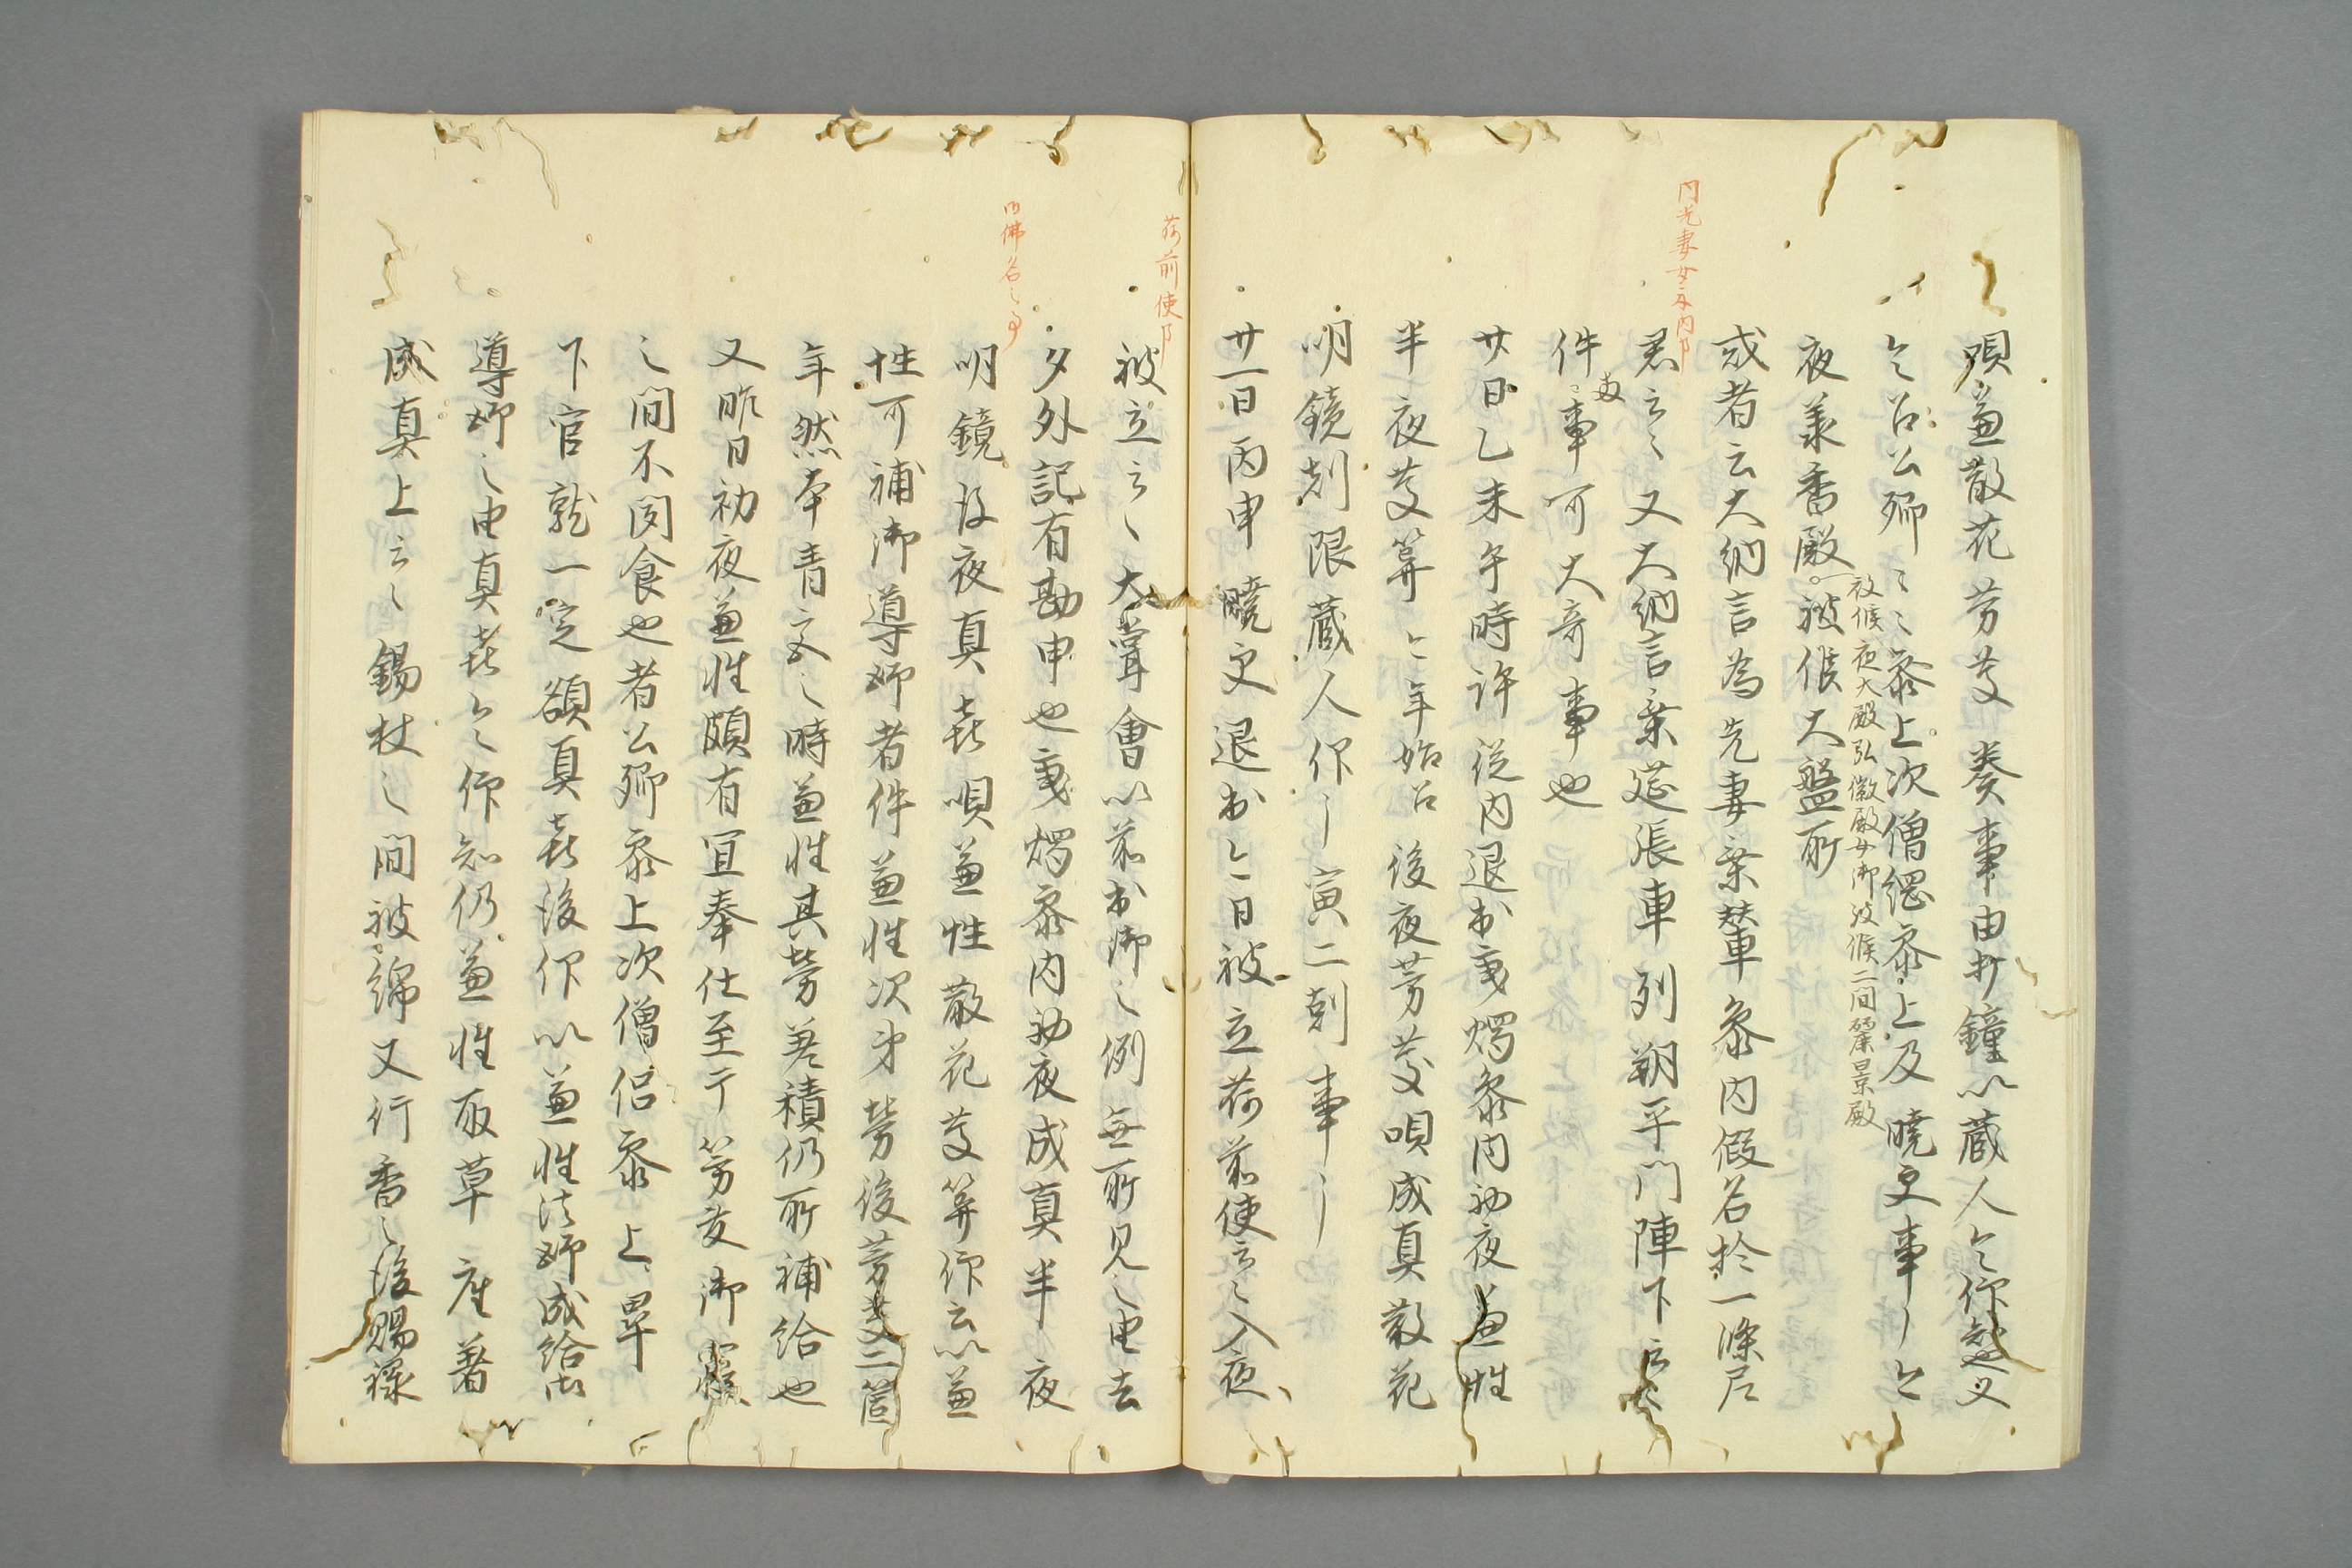 唄兼散花芳慶奏事由打鐘以蔵人令仰知也又
令召公卿〻〻参上次僧綱参上及暁更事了今
夜美香殿被候大盤所
被候夜大殿弘徽殿女御被候二間麗景殿
或者云大納言為先妻乗輦車参内假名於一條尼
君云〻又大納言乗莚張車列朔平門陣下云〻
件事可大奇事也
廿日乙未午時許従内退出乗燭参内初夜兼性
半夜慶算今年始召後夜芳慶唄成真散花
明鏡剋限蔵人仰了寅二剋事了
廿一日丙申暁更退出今日被立荷前使云〻入夜
被立云〻大嘗會以前出御之例無所見之由去
夕外記有勘申也乗燭参内初夜成真半夜
明鏡後夜真喜唄兼性散花慶算仰云以兼
性可補御導師者件兼性次第労後芳慶二箇
年然奉青文之時兼性其労差積仍所補給也
又昨日初夜兼性頗有宜奉仕至于芳慶御
之間不聞食也者公卿参上次僧侶参上畢
下官就一定額真喜後仰以兼性法師成給御
導師之由真喜令仰知仍兼性取草座著
成真上云〻錫杖之間被綿又行香之後賜禄
内先妻女事内了
荷前使了
御佛名之事